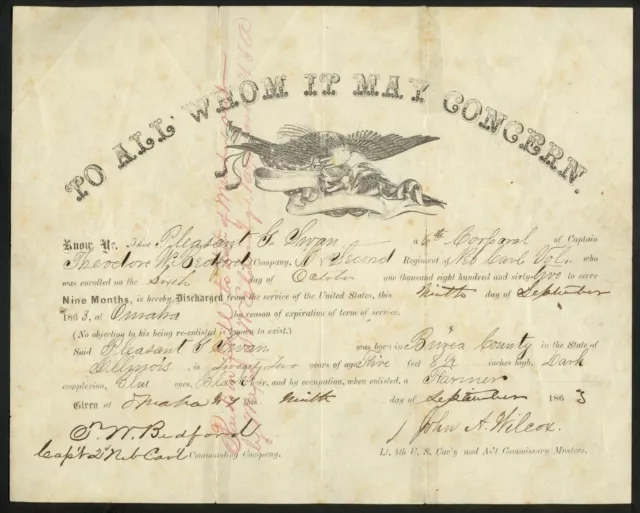 TO ALL WHOM IT MAY CONCERN.
Know Ye, That Pleasant G. Swan a 6th Corporal of Captain
Theodore W. Bedford Company, Second Regiment of Neb Cav Vol. who
was enrolled on the Sixth day of October one thousand eight hundred and sixty-two to serve
Nine Months, is hereby Discharged from the service of the United States, this Ninth day of September
1863, at Omaha by reason of expiration of term of service.
(No objection to his being re-enlisted is known to exist.)
Said Pleasant G. Swan was born in Burea County in the State of
Illinois is Twenty Two years of age Five feet 8 1/2 inches high, Dark
complexion, Blue eyes, Black hair, and by occupation, when enlisted, a Farmer
Given at Omaha N.T. this Ninth day of September 1863
T. W. Bedford
Capt 2d Neb Cavl Commanding Company.
John A. Wilcox.
Lt. 4th U. S. Cav'y and Ac't Commissary Musters.